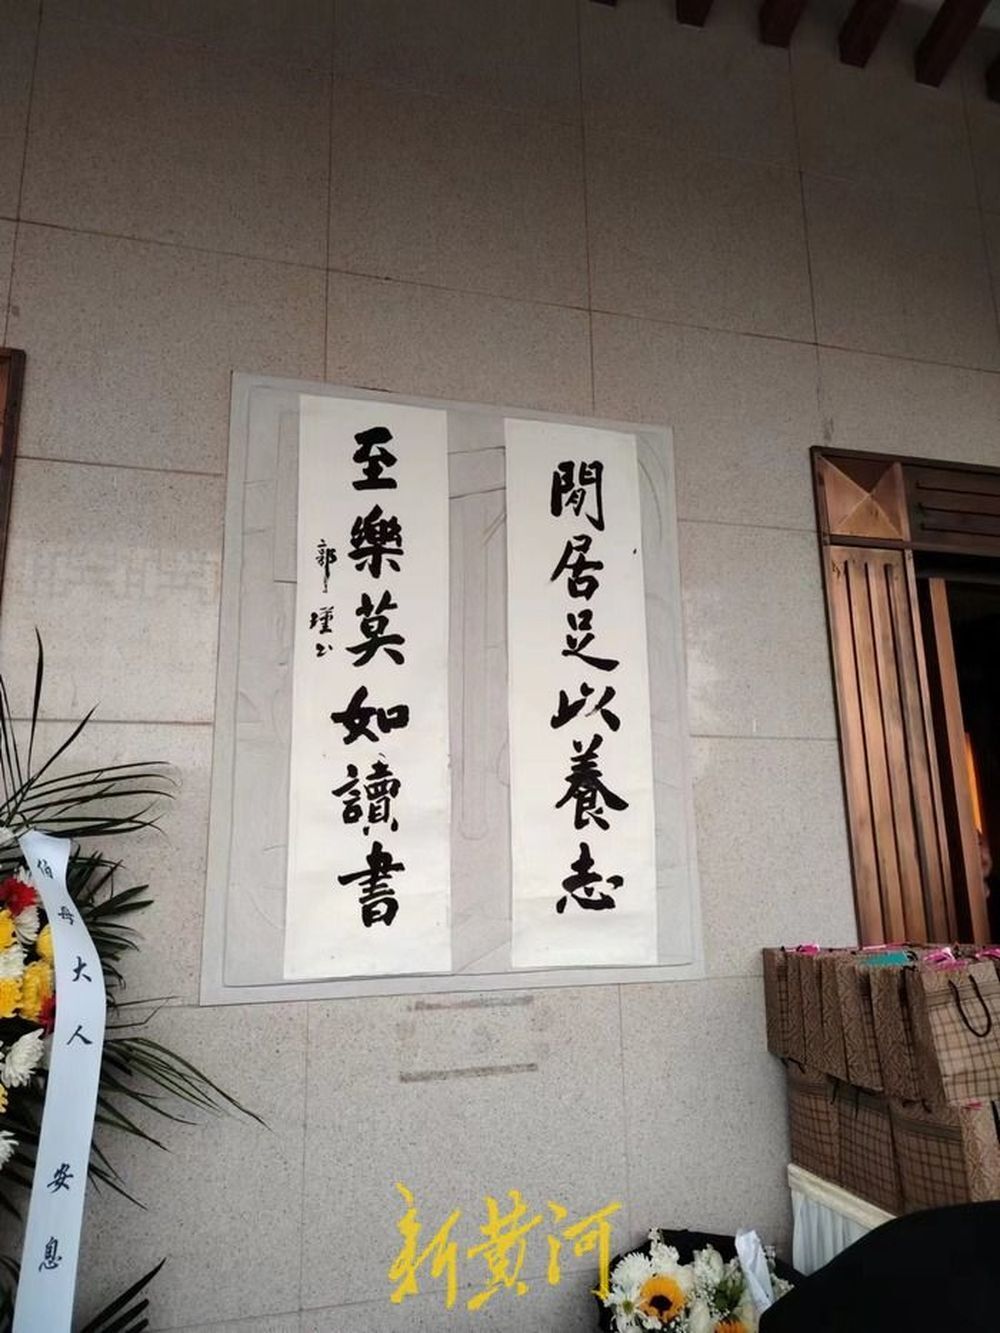 閒居足以養志
至樂莫如讀書
郭瑾书
伯母大人安息
新黄河